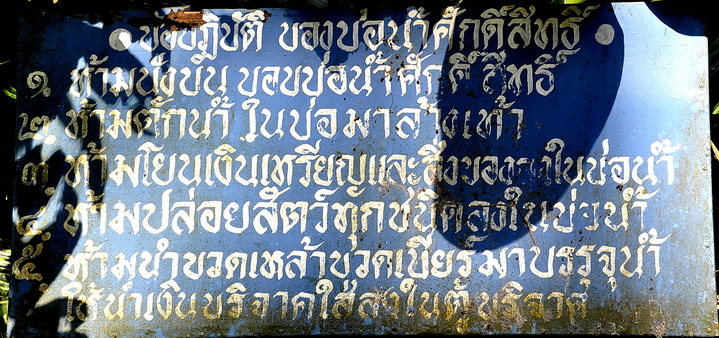 • ข้อปฏิบัติ ของบ่อน้ำศักดิ์สิทธิ์ •
๑. ห้ามนั่งบน ขอบบ่อน้ำศักดิ์สิทธิ์
๒. ห้ามตักน้ำ ในบ่อมาล้างเท้า
๓. ห้ามโยนเงินเหรียญและสิ่งของลงในบ่อน้ำ
๔. ห้ามปล่อยสัตว์ทุกชนิดลงในบ่อน้ำ
๕. ห้ามนำขวดเหล้าขวดเบียร์มาบรรจุน้ำ
ให้นำเงินบริจาคใส่ลงในตู้บริจาค